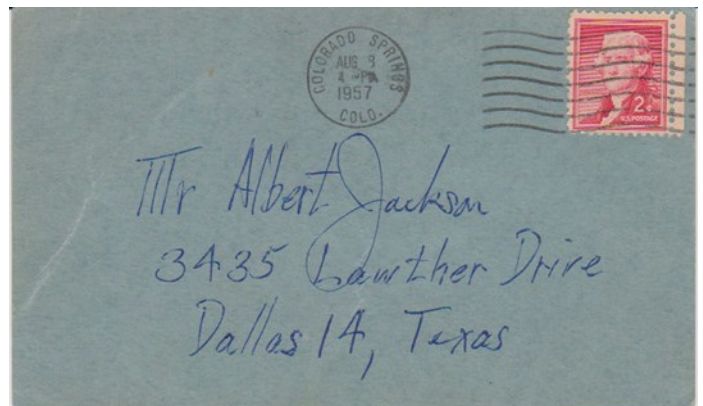 COLORADO SPRINGS
AUG 3
4 PM
1957
COLO.
2¢
U.S. POSTAGE
Mr Albert Jackson
3435 Lawther Drive
Dallas 14, Texas